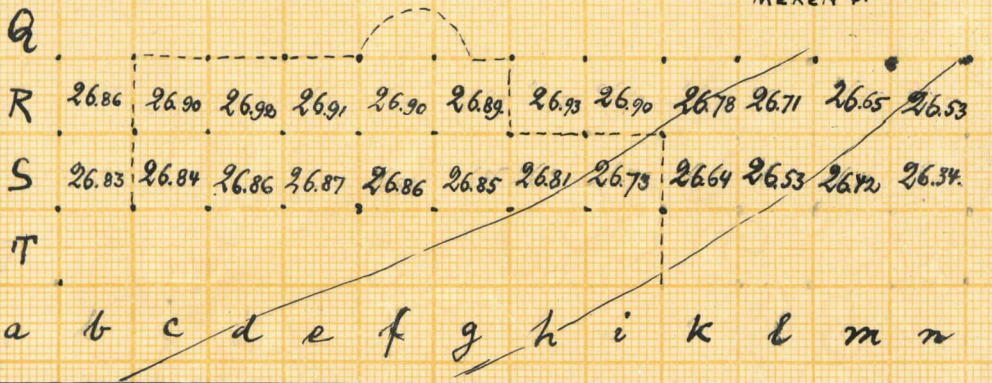 Q
R 26.86 26.90 26.92 26.91 26.90 26.89 26.93 26.90 26.78 26.71 26.65 26.53
S 26.83 26.84 26.86 26.87 26.86 26.85 26.81 26.73 26.64 26.53 26.42 26.34.
T
a b c d e f g h i k l m n